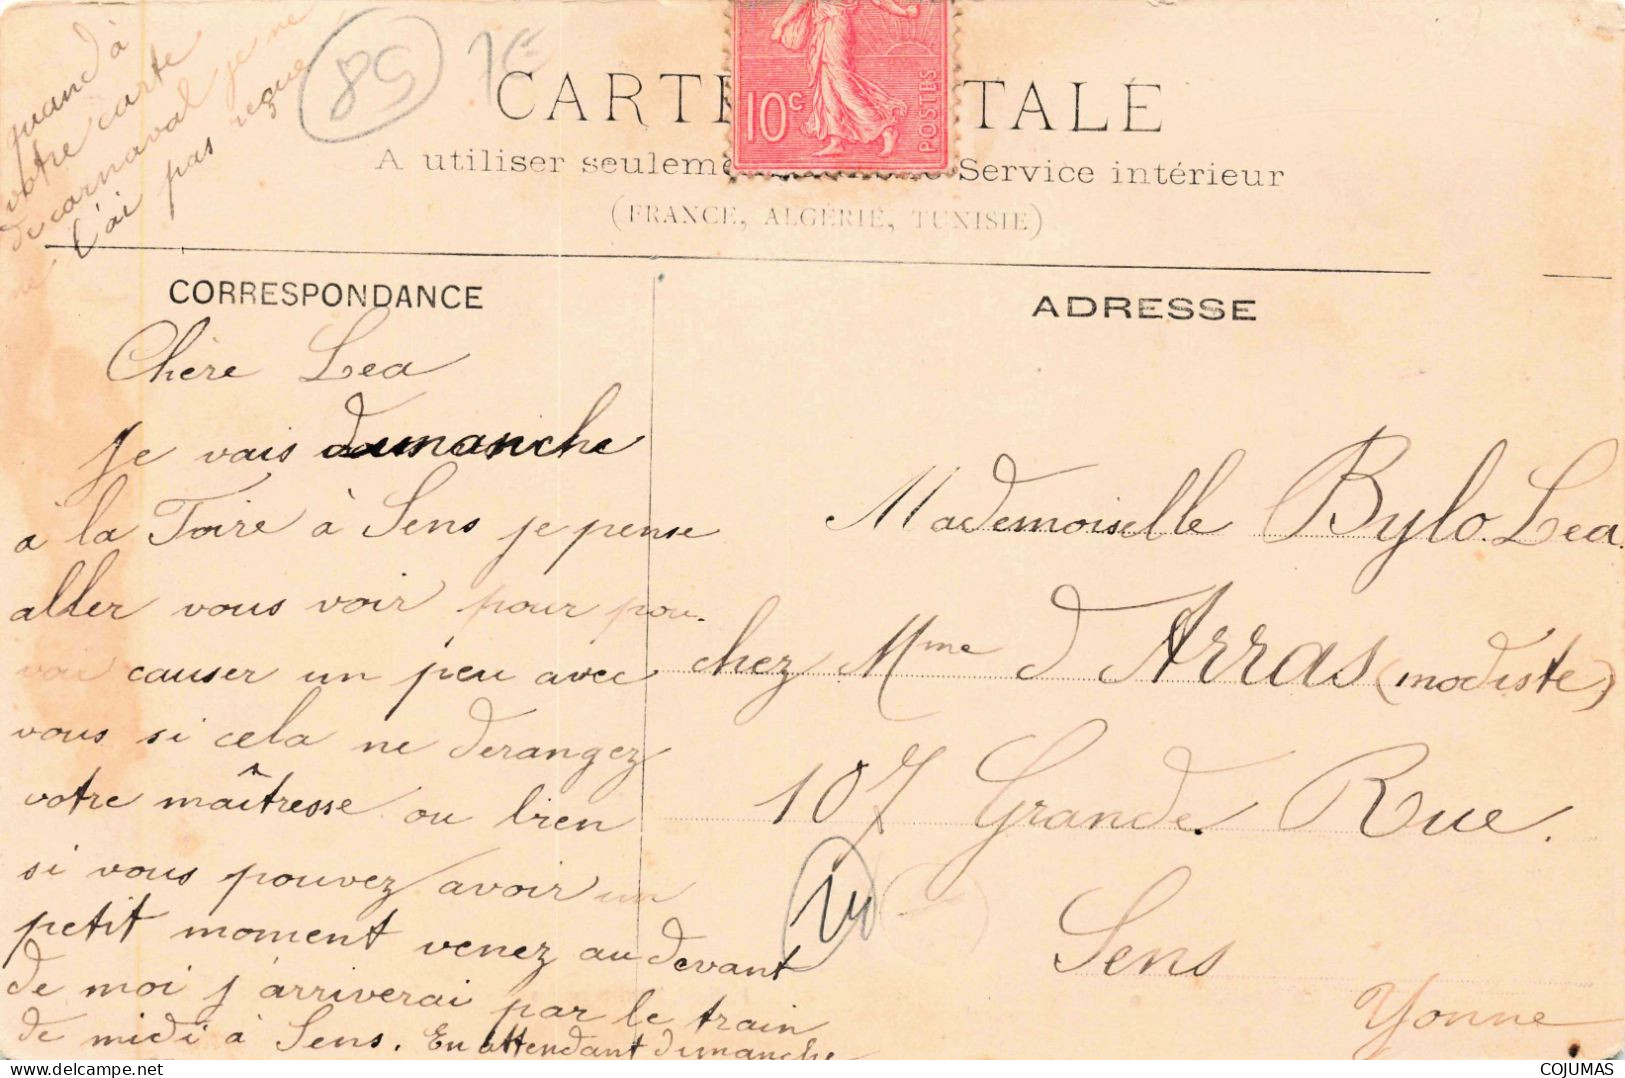 quand à
votre carte
de carnaval je ne
l'ai pas reçue
85 1€
CARTE POSTALE
10c
POSTES
A utiliser seulement Service intérieur
(FRANCE, ALGÉRIE, TUNISIE)
CORRESPONDANCE
Chère Lea
Je vais dimanche
à la Foire à Sens je pense
aller vous voir pour pou-
voir causer un peu avec
vous si cela ne derangez
votre maîtresse ou bien
si vous pouvez avoir un
petit moment venez au devant
de moi j'arriverai par le train
de midi à Sens. En attendant dimanche
ADRESSE
Mademoiselle Bylo. Lea
chez Mme d'Arras (modiste)
107 Grande Rue.
Sens
Yonne
COJUMAS